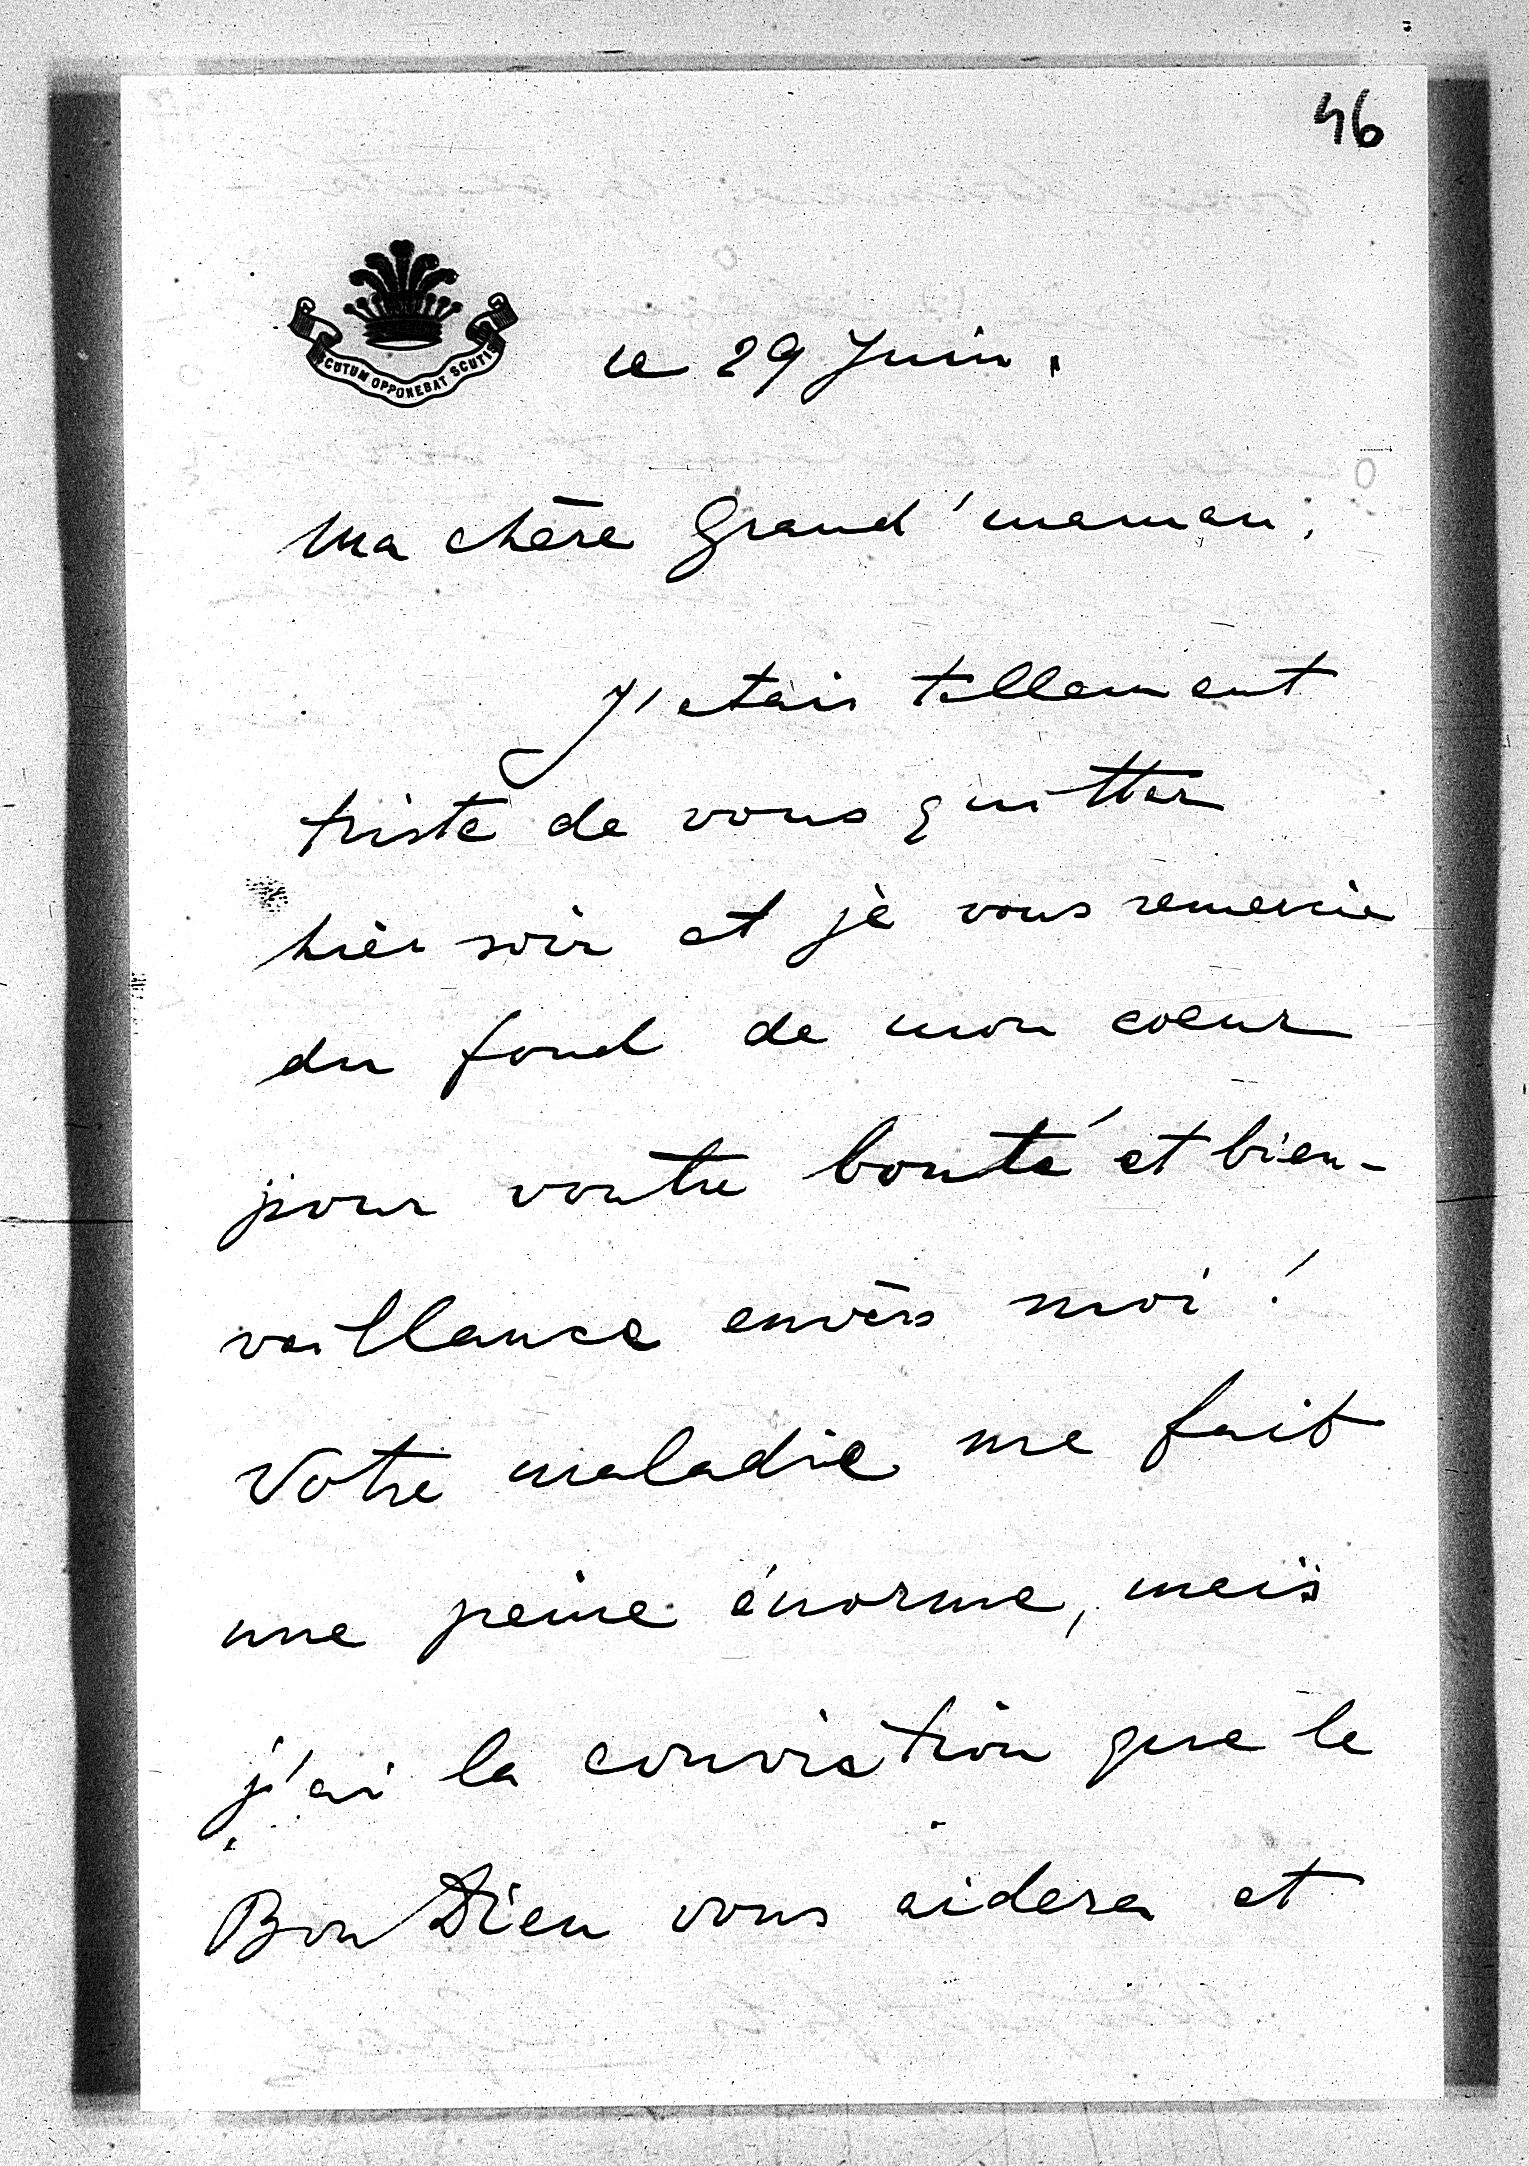 46
SCUTUM OPPONEBAT SCUTIS
le 29 Juin.
Ma chère Grand'maman,
J'etais tellement
triste de vous quitter
hier soir et je vous remercie
du fond de mon coeur
pour voutre bonté et bien-
veillance envers moi!
Votre maladie me fait
une peine énorme, mais
j'ai la conviction que le
Bon Dieu vous aidera et